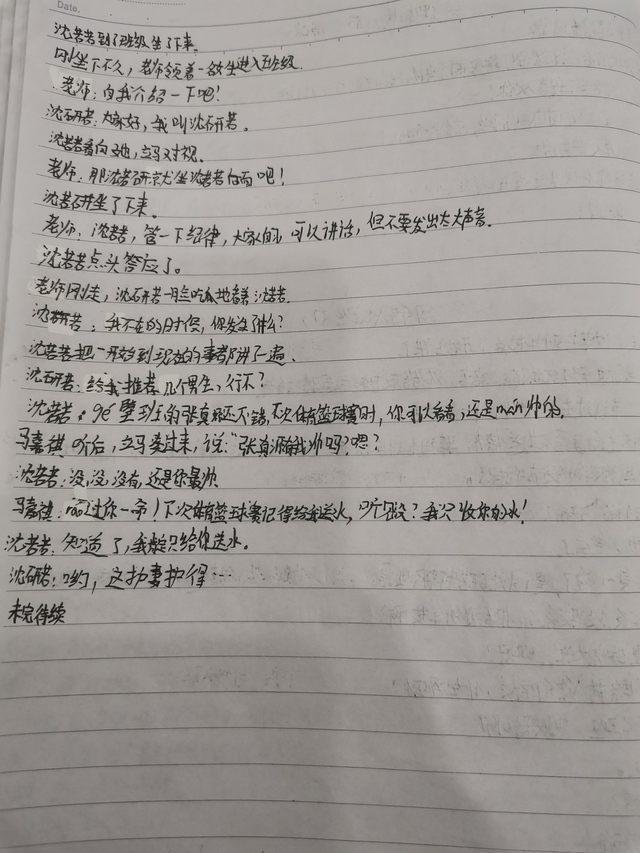 Date.
沈若若到了班级坐了下来。
刚坐下不久，老师领着一女生进入班级.
老师：自我介绍一下吧！
沈研若：大家好，我叫沈研若。
沈若若看向她，立马对视。
老师：那沈若研就坐沈若若后面吧！
沈若研坐了下来。
老师：沈若若，管一下纪律，大家可以讲话，但不要发出太大声音.
沈若若点头答应了。
老师刚走，沈研若一脸吃瓜地看着沈若若.
沈研若：我不在的时侯，你发生了什么？
沈若若把一开始到现在的事都讲了一遍.
沈研若：给我推荐几个男生，行不？
沈若若：隔壁班的张真源还不错，下次体育篮球赛时，你可以看看，还是man帅的.
马嘉祺听后，立马凑过来，说："张真源有我帅吗？嗯？
沈若若：没，没，没有，还是你最帅.
马嘉祺：放过你一命！下次体育篮球赛记得给我送水，听到没？我只收你的水！
沈若若：知道了，我一定只给你送水。
沈研若：哟，这护妻护得…
未完待续